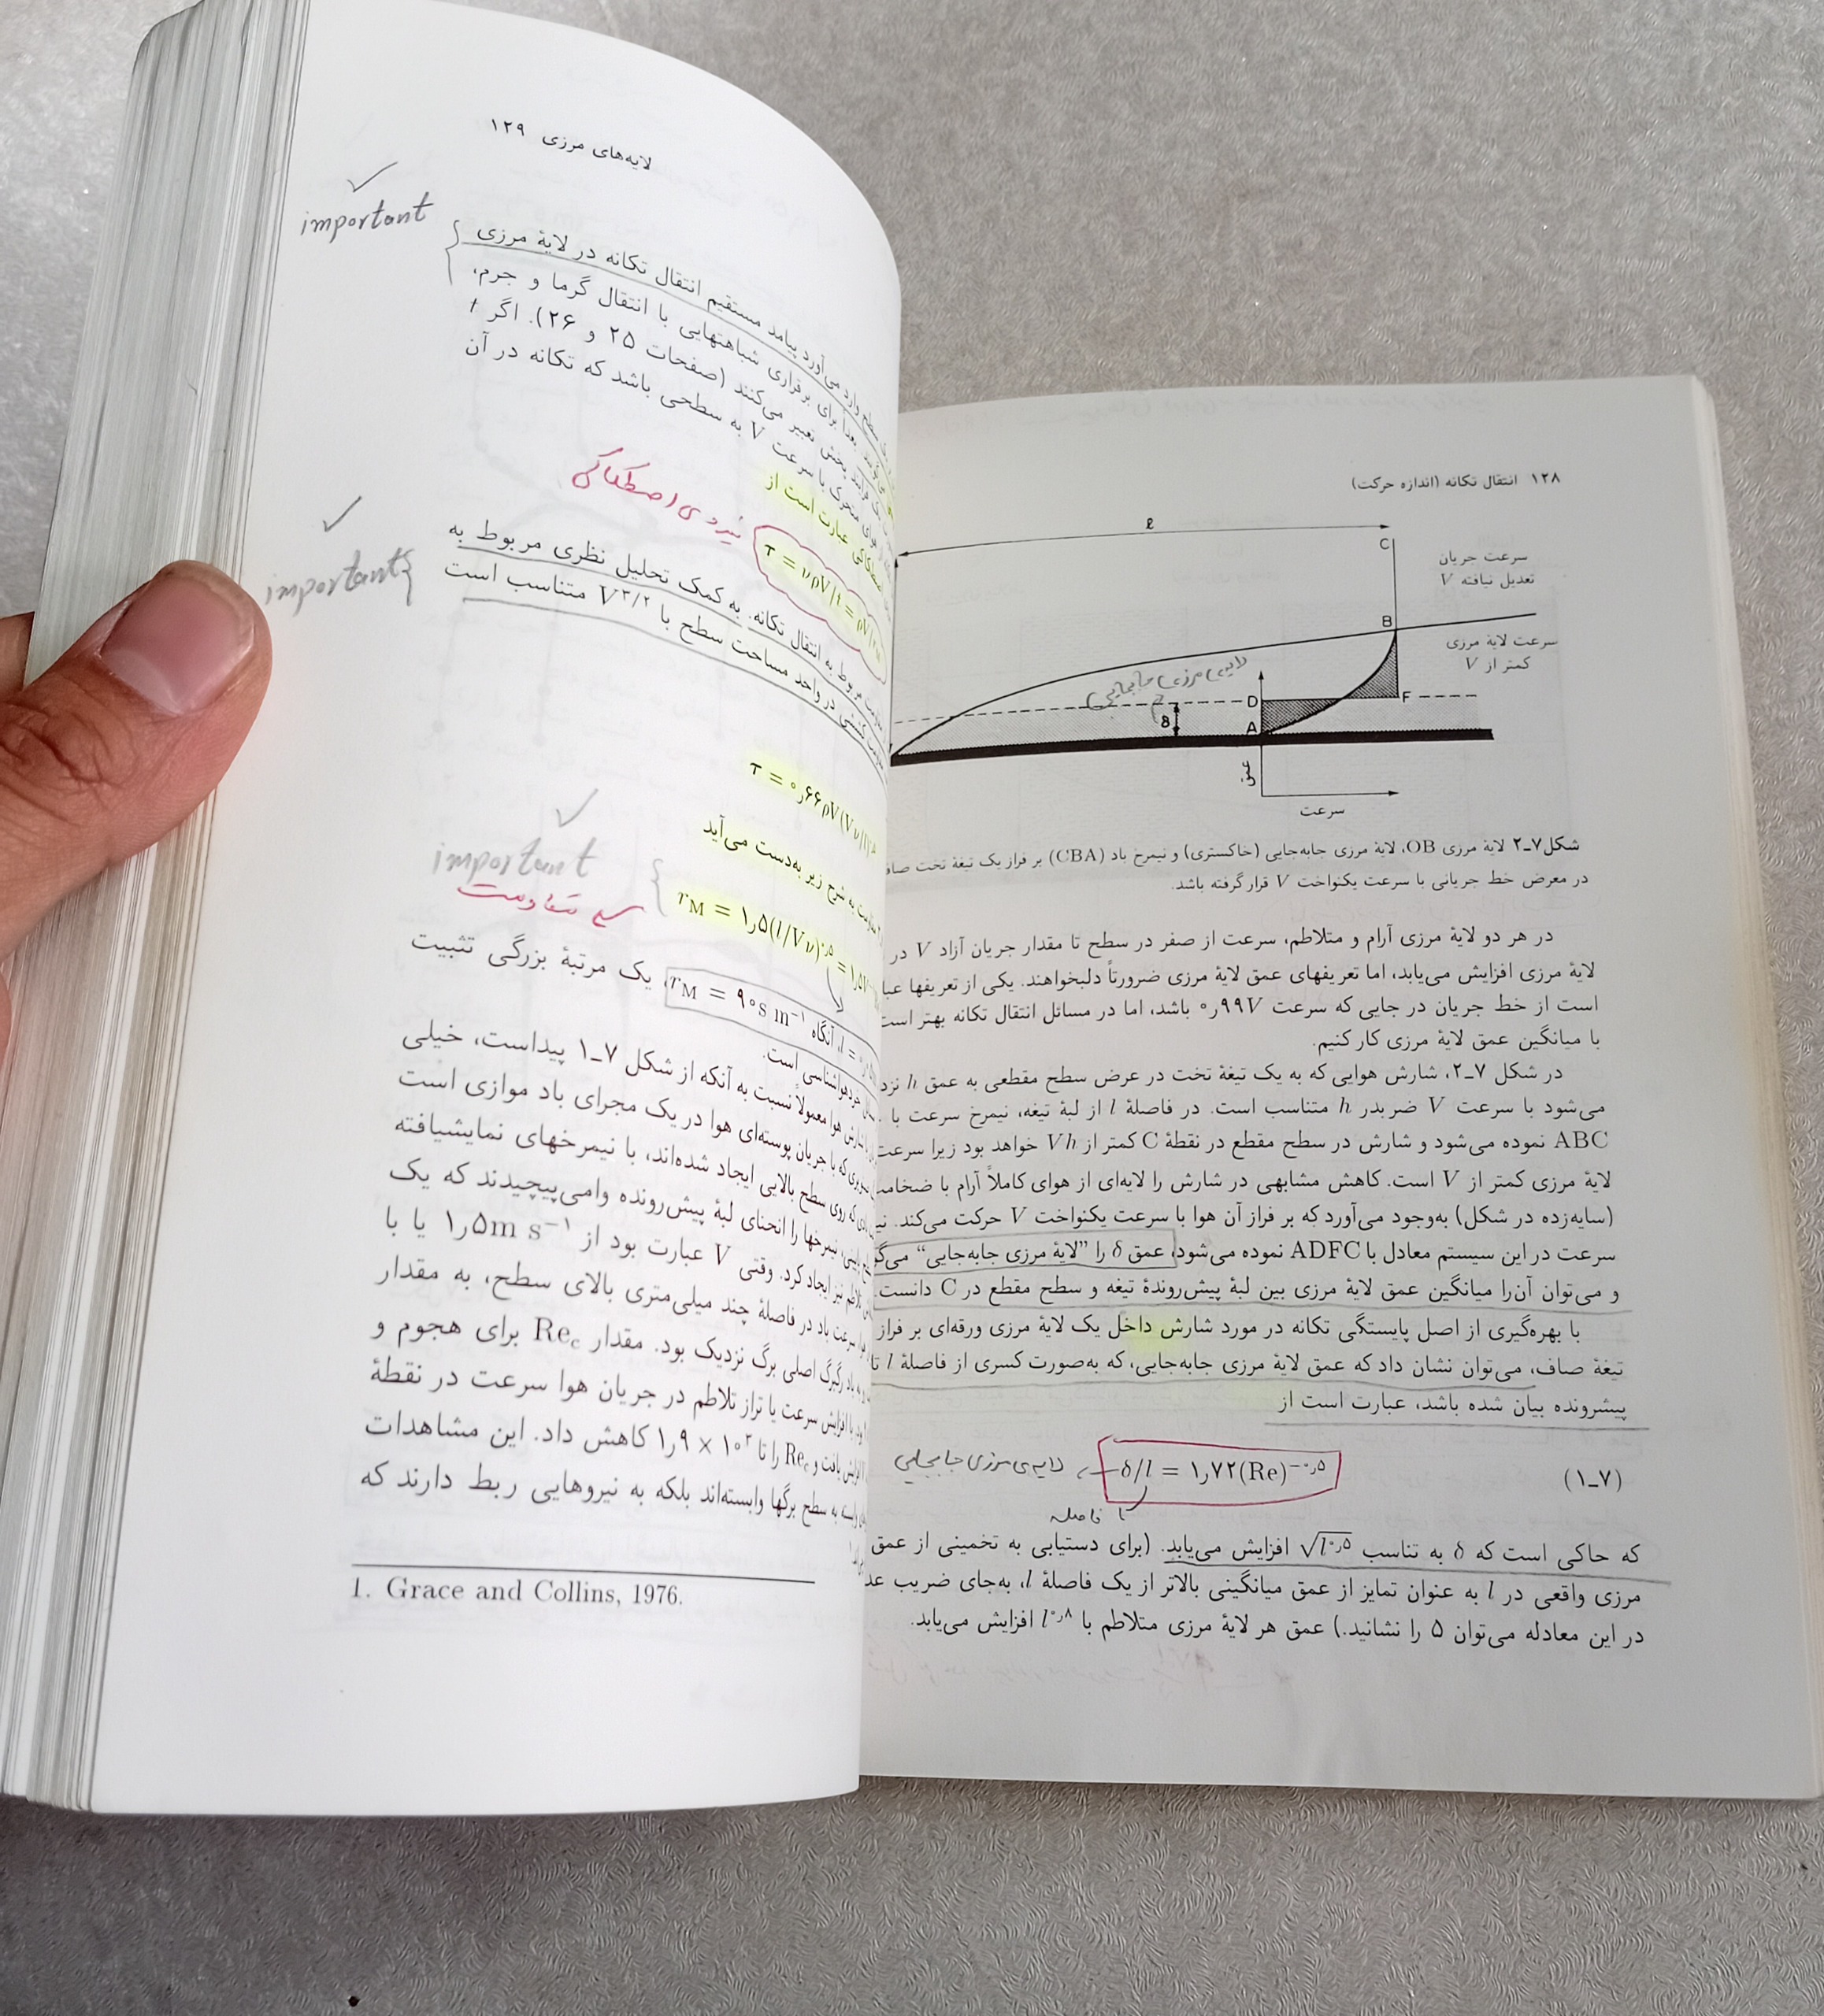 ۱۲۸ انتقال تکانه (اندازه حرکت)
ℓ
C
سرعت جریان
تعدیل نیافته V
B
سرعت لایهٔ مرزی
کمتر از V
لایه‌ی مرزی جابجایی
D
F
δ
A
عمق
سرعت
شکل۷ـ۲ لایهٔ مرزی OB، لایهٔ مرزی جابه‌جایی (خاکستری) و نیمرخ باد (CBA) بر فراز یک تیغهٔ تخت صاف
در معرض خط جریانی با سرعت یکنواخت V قرار گرفته باشد.
در هر دو لایهٔ مرزی آرام و متلاطم، سرعت از صفر در سطح تا مقدار جریان آزاد V در
لایهٔ مرزی افزایش می‌یابد، اما تعریفهای عمق لایهٔ مرزی ضرورتاً دلبخواهند. یکی از تعریفها
است از خط جریان در جایی که سرعت ۰٫۹۹V باشد، اما در مسائل انتقال تکانه بهتر است
با میانگین عمق لایهٔ مرزی کار کنیم.
در شکل ۷ـ۲، شارش هوایی که به یک تیغهٔ تخت در عرض سطح مقطعی به عمق h
می‌شود با سرعت V ضربدر h متناسب است. در فاصلهٔ l از لبهٔ تیغه، نیمرخ سرعت با
ABC نموده می‌شود و شارش در سطح مقطع در نقطهٔ C کمتر از Vh خواهد بود زیرا سرعت
لایهٔ مرزی کمتر از V است. کاهش مشابهی در شارش را لایه‌ای از هوای کاملاً آرام با
(سایه‌زده در شکل) به‌وجود می‌آورد که بر فراز آن هوا با سرعت یکنواخت V حرکت می‌کند.
سرعت در این سیستم معادل با ADFC نموده می‌شود، عمق δ را ”لایهٔ مرزی جابه‌جایی“
و می‌توان آن‌را میانگین عمق لایهٔ مرزی بین لبهٔ پیش‌روندهٔ تیغه و سطح مقطع در C دانست.
با بهره‌گیری از اصل پایستگی تکانه در مورد شارش داخل یک لایهٔ مرزی ورقه‌ای بر فراز
تیغهٔ صاف، می‌توان نشان داد که عمق لایهٔ مرزی جابه‌جایی، که به‌صورت کسری از فاصلهٔ l تا
پیشرونده بیان شده باشد، عبارت است از
(۷ـ۱) δ/l = ۱٫۷۲(Re)^−۰٫۵ لایه‌ی مرزی جابجایی
فاصله
که حاکی است که δ به تناسب √l^۰٫۵ افزایش می‌یابد. (برای دستیابی به تخمینی از عمق
مرزی واقعی در l به عنوان تمایز از عمق میانگینی بالاتر از یک فاصلهٔ l، به‌جای ضریب
در این معادله می‌توان ۵ را نشانید.) عمق هر لایهٔ مرزی متلاطم با l^۰٫۸ افزایش می‌یابد.
لایه‌های مرزی ۱۲۹
important
سطح وارد می‌آورد پیامد مستقیم انتقال تکانه در لایهٔ مرزی
بعداً برای برقراری شباهتهایی با انتقال گرما و جرم،
پخش تعبیر می‌کنند (صفحات ۲۵ و ۲۶). اگر t
متحرک با سرعت V به سطحی باشد که تکانه در آن
اصطکاکی عبارت است از
نیروی اصطکاکی
τ = νρV/t = ρV/r_M
important
مربوط به انتقال تکانه. به کمک تحلیل نظری مربوط به
کششی در واحد مساحت سطح با V^۳/۲ متناسب است
τ = ۰٫۶۶ρV(Vν/l)^۰٫۵
مقاومت به شرح زیر به‌دست می‌آید
important
مقاومت
r_M = ۱٫۵(l/Vν)^۰٫۵
آنگاه r_M = ۹۰ s m^−۱، یک مرتبهٔ بزرگی تثبیت
خردهواشناسی است.
شارش هوا معمولاً نسبت به آنکه از شکل ۷ـ۱ پیداست، خیلی
که با جریان پوسته‌ای هوا در یک مجرای باد موازی است
که روی سطح بالایی ایجاد شده‌اند، با نیمرخهای نمایشیافته
نیمرخها را انحنای لبهٔ پیش‌رونده وامی‌پیچیدند که یک
تلاطم نیز ایجاد کرد. وقتی V عبارت بود از ۱٫۵m s^−۱ یا با
سرعت باد در فاصلهٔ چند میلی‌متری بالای سطح، به مقدار
رگبرگ اصلی برگ نزدیک بود. مقدار Re_c برای هجوم و
با افزایش سرعت یا تراز تلاطم در جریان هوا سرعت در نقطهٔ
افزایش یافت و Re_c را تا ۱٫۹ × ۱۰^۳ کاهش داد. این مشاهدات
وابسته به سطح برگها وابسته‌اند بلکه به نیروهایی ربط دارند که
1. Grace and Collins, 1976.